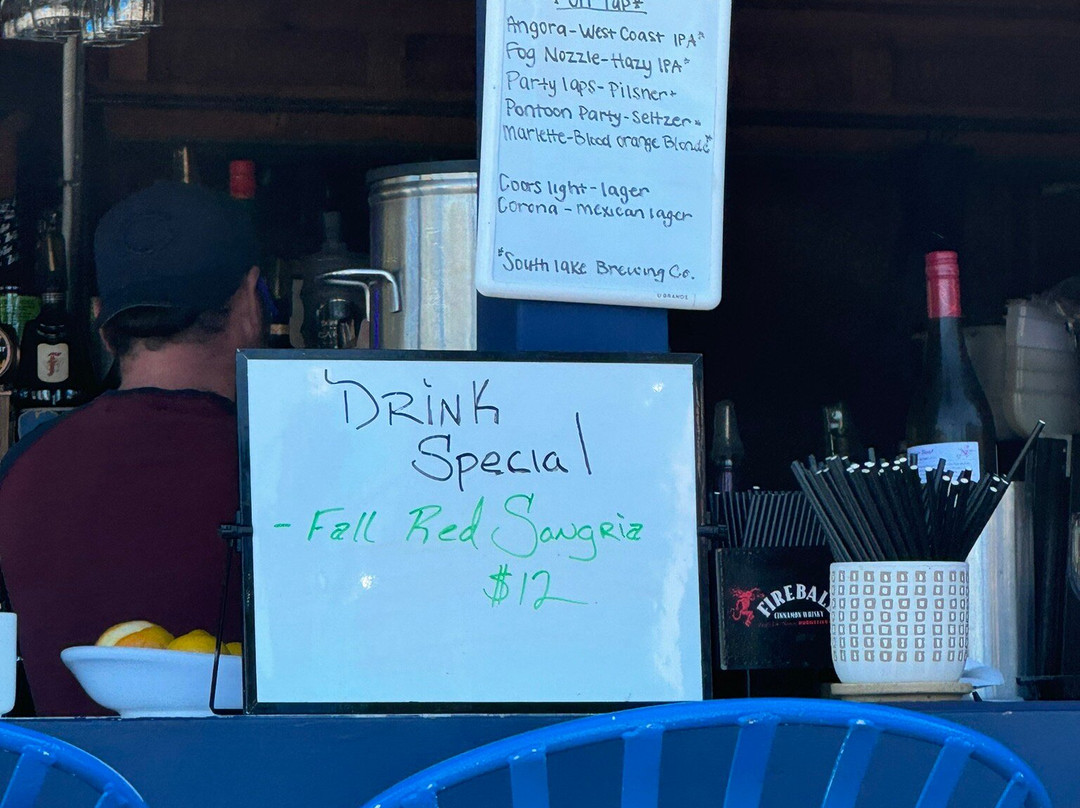 Angora-West Coast IPA*
Fog Nozzle-Hazy IPA*
Party laps-Pilsner+
Pontoon Party-Seltzer*
Marlette-Blood orange Blonde*
Coors light-lager
Corona-mexican lager
*South lake Brewing Co.
U BRANDS
DRINK
Special
- Fall Red Sangria
$12
FIREBALL
CINNAMON WHISKY